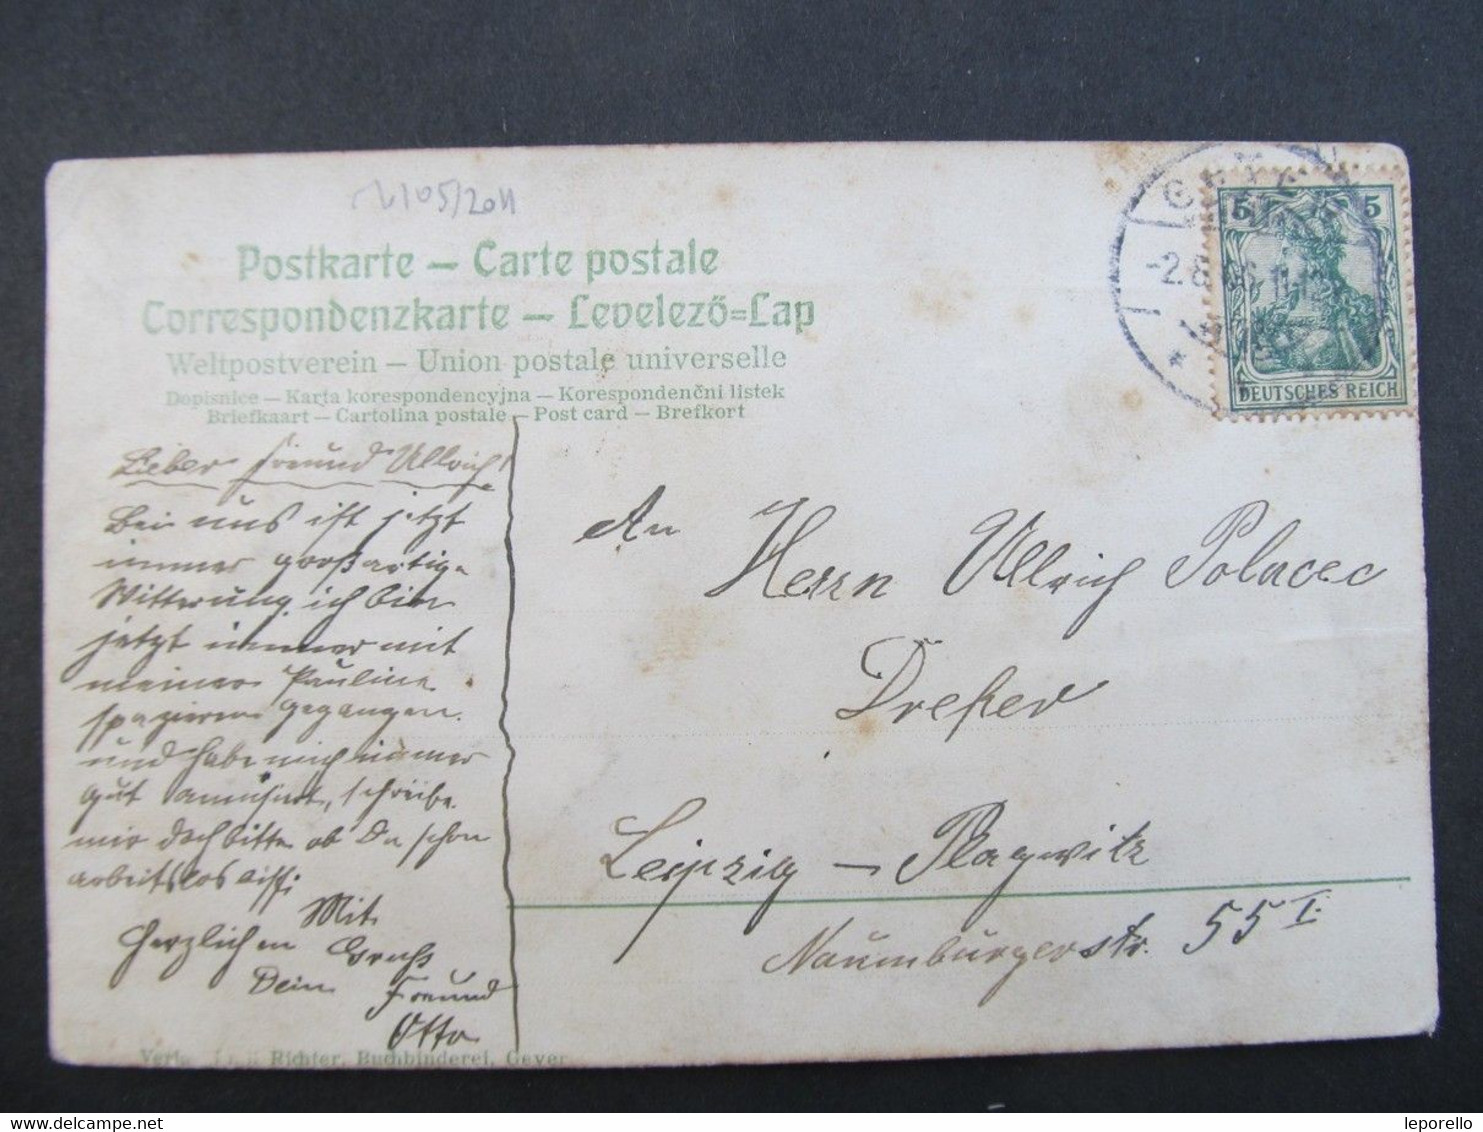 Postkarte – Carte postale
Correspondenzkarte – Levelező=Lap
Weltpostverein – Union postale universelle
Dopisnice – Karta korespondencyjna – Korespondenčni listek
Briefkaart – Cartolina postale – Post card – Brefkort
5 5
DEUTSCHES REICH
-2.8.06.11-12
Lieber Freund Ullrich!
Bei uns ist jetzt
immer großartige
Witterung, ich bin
jetzt immer mit
meiner Pauline
spazieren gegangen.
und habe mich immer
gut amüsiert, schreibe
mir doch bitte ob Du schon
arbeitslos bist.
Mit
herzlichen Gruß
Dein Freund
Otto
An
Herrn Ullrich Polacec
Dreher
Leipzig – Plagwitz
Naumburgerstr. 55 I.
Richter, Buchbinderei, Geyer
leporello